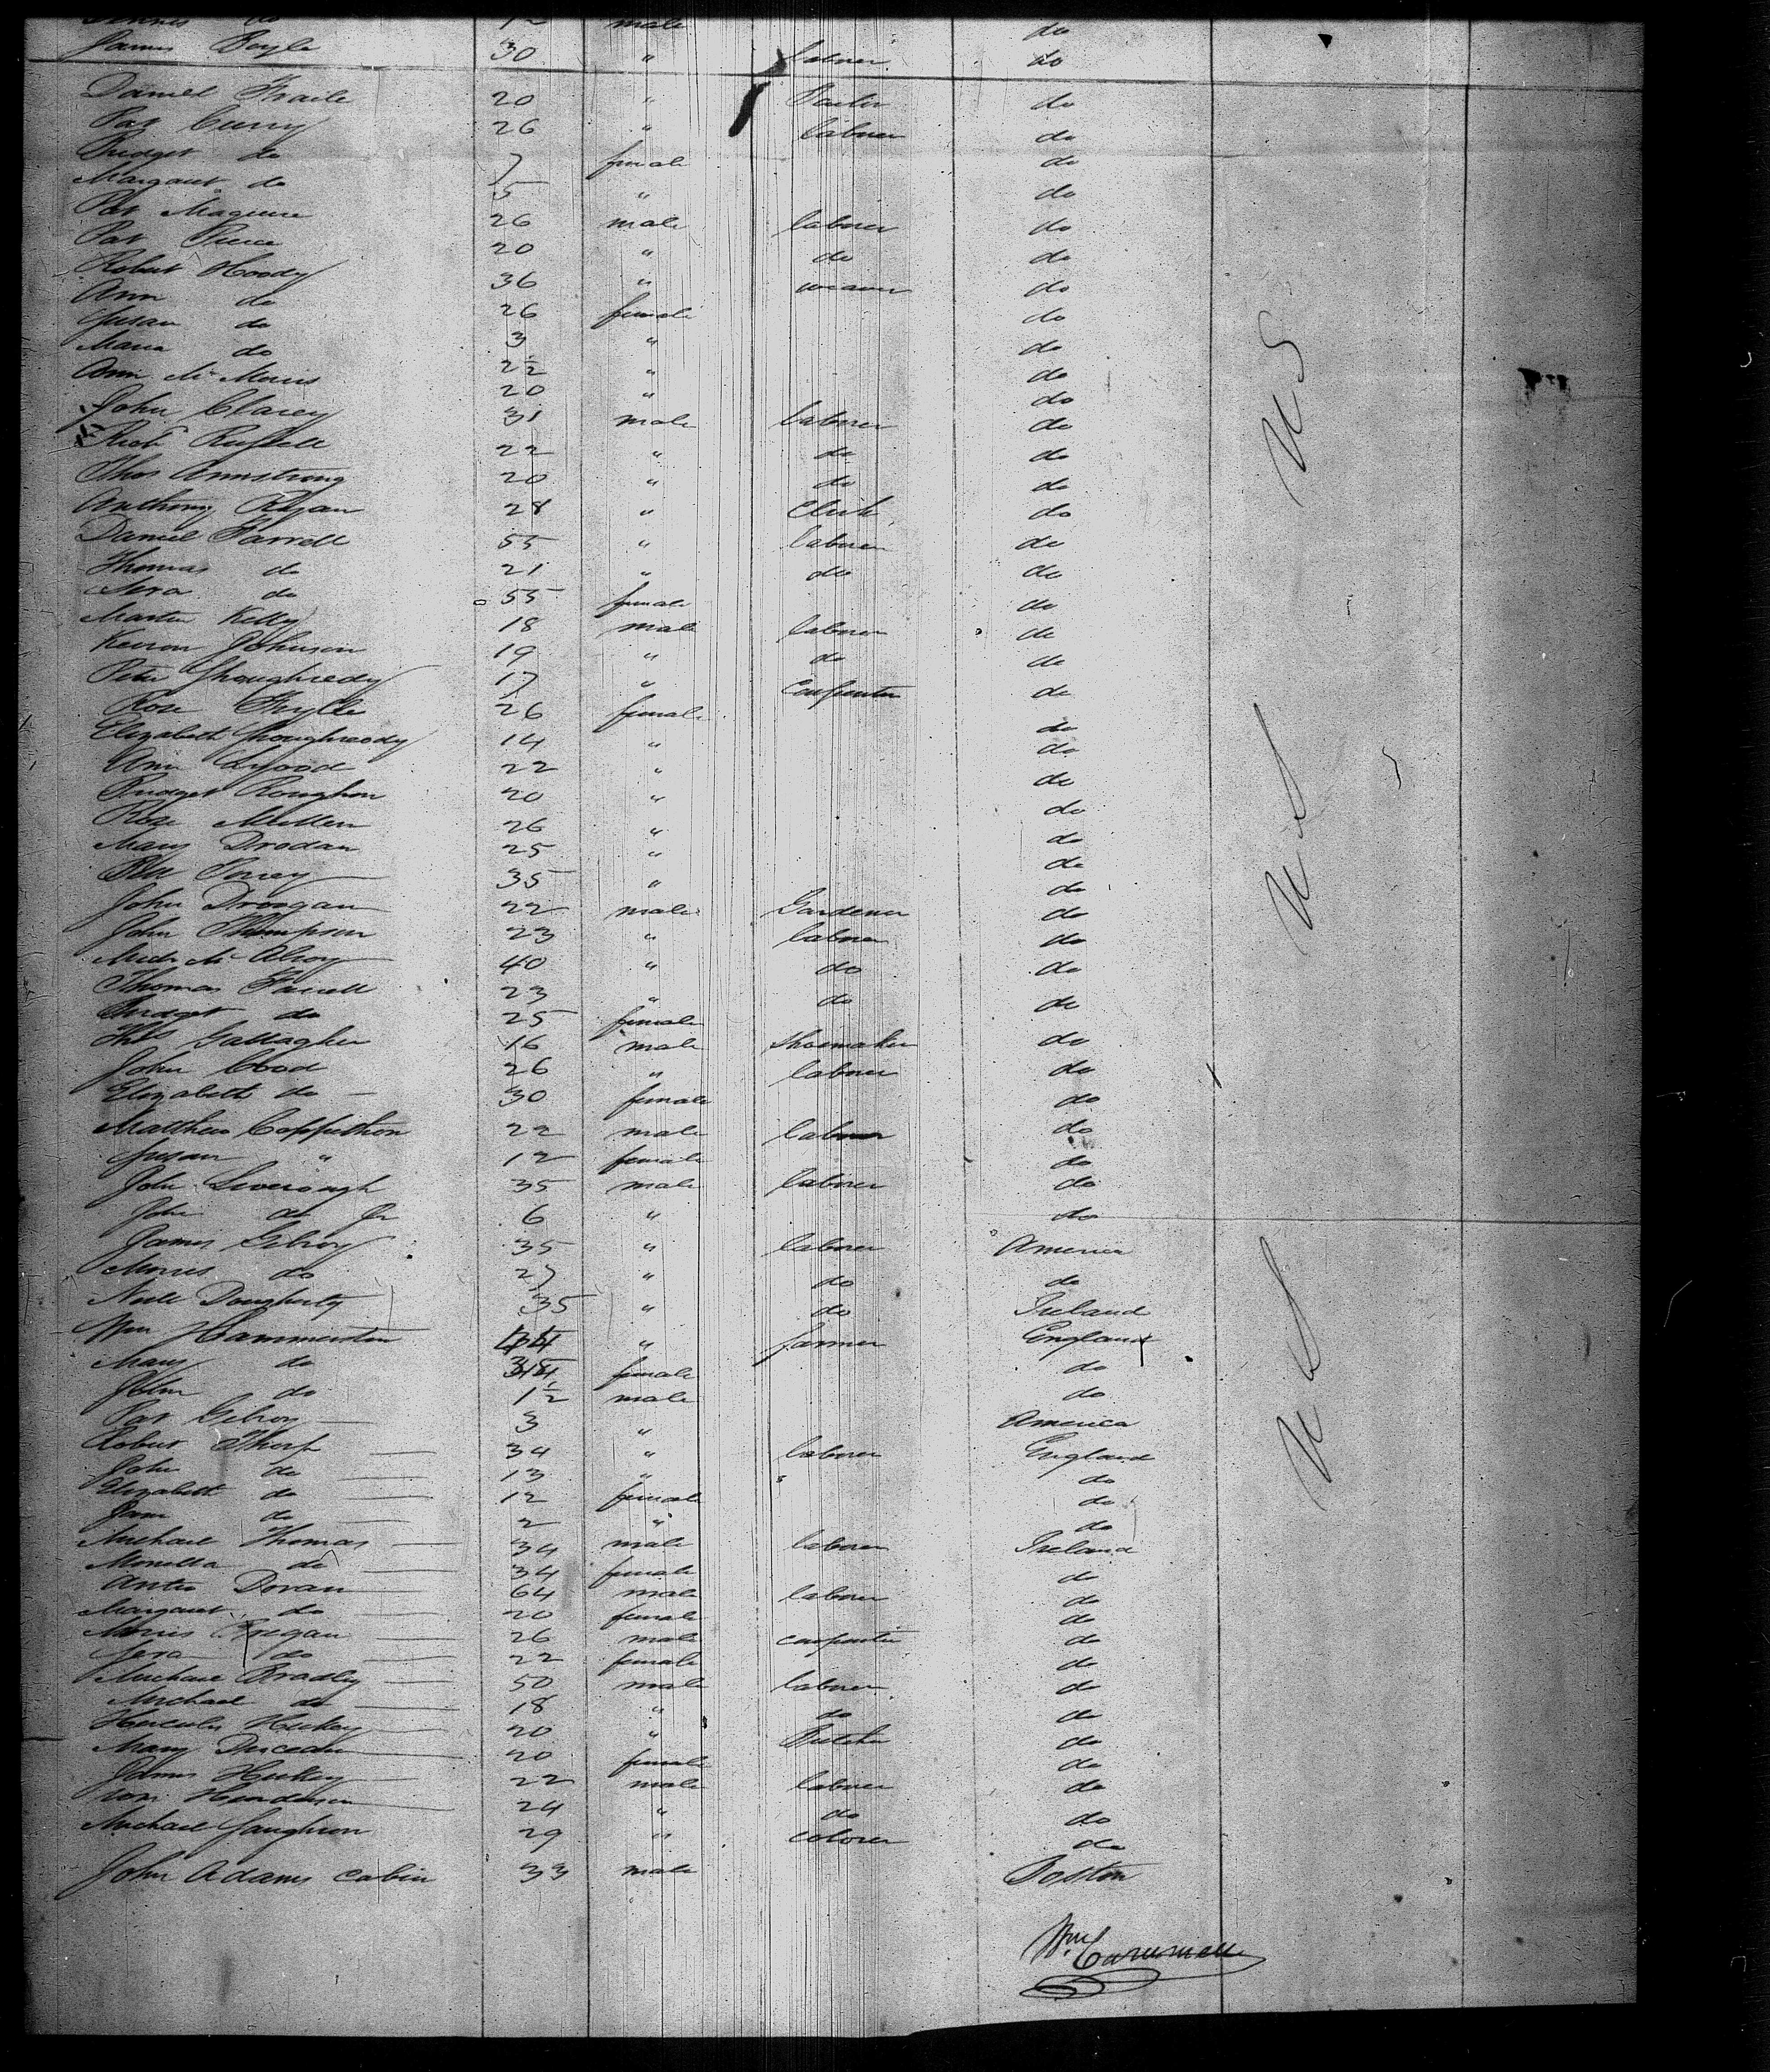 do 12 male do
James Boyle 30 " laborer do
Daniel 20 " do
Pat Curry 26 " laborer do
Bridget do 7 female do
Margaret do 5 " do
Pat Maguire 26 male laborer do
Pat 20 " do do
Robert Hoody 36 " weaver do
Ann do 26 female do
Susan do 3 " do
Maria do 2½ " do
Ann Mc 20 " do
John Clarey 31 male laborer do
Richd Russell 22 " do do
Thos Armstrong 20 " do do
Anthony Ryan 28 " Clerk do
Daniel Farrell 55 " laborer do
Thomas do 21 " do do
do 55 female do
Martin Kelly 18 male laborer do
Johnson 19 " do do
Peter Shaughnedy 17 " Carpenter do
Rose 26 female do
Elizabeth Shoughnedy 14 " do
Ann 22 " do
Bridget Roughan 20 " do
Rose Mullen 26 " do
Mary Drodan 25 " do
35 " do
John Droogan 22 male Gardener do
John Thompson 23 " laborer do
Mich Mc Alroy 40 " do do
Thomas Farrell 23 " do do
Bridget do 25 female do
Gallagher 16 male Shoemaker do
John Wood 26 " laborer do
Elizabeth do 30 female do
Matthew Coppithon 22 male laborer do
Susan " 12 female do
John 35 male laborer do
John do Jr 6 " do
James Gilroy 35 " laborer America
do 27 " do do
Neile Dougherty 35 " do Ireland
Wm Hammerston 44 " farmer England
Mary do female do
John do 1½ male do
Pat Gilroy 3 " America
Robert Thorp 34 " laborer England
John do 13 " do
Elizabeth do 12 female do
Jane do 2 " do
Michael Thomas 34 male laborer Ireland
do 34 female do
Doran 64 male laborer do
Margaret do 20 female do
Morris Regan 26 male carpenter do
do 22 female do
Michael Bradley 50 male laborer do
Michael do 18 " do do
Hercules Hickey 20 " do
Mary 20 female do
James Hickey 22 male laborer do
Henderson 24 " do do
Michael Gaughron 29 " do
John Adams cabin 33 male Boston
U S
U S
U S
Wm